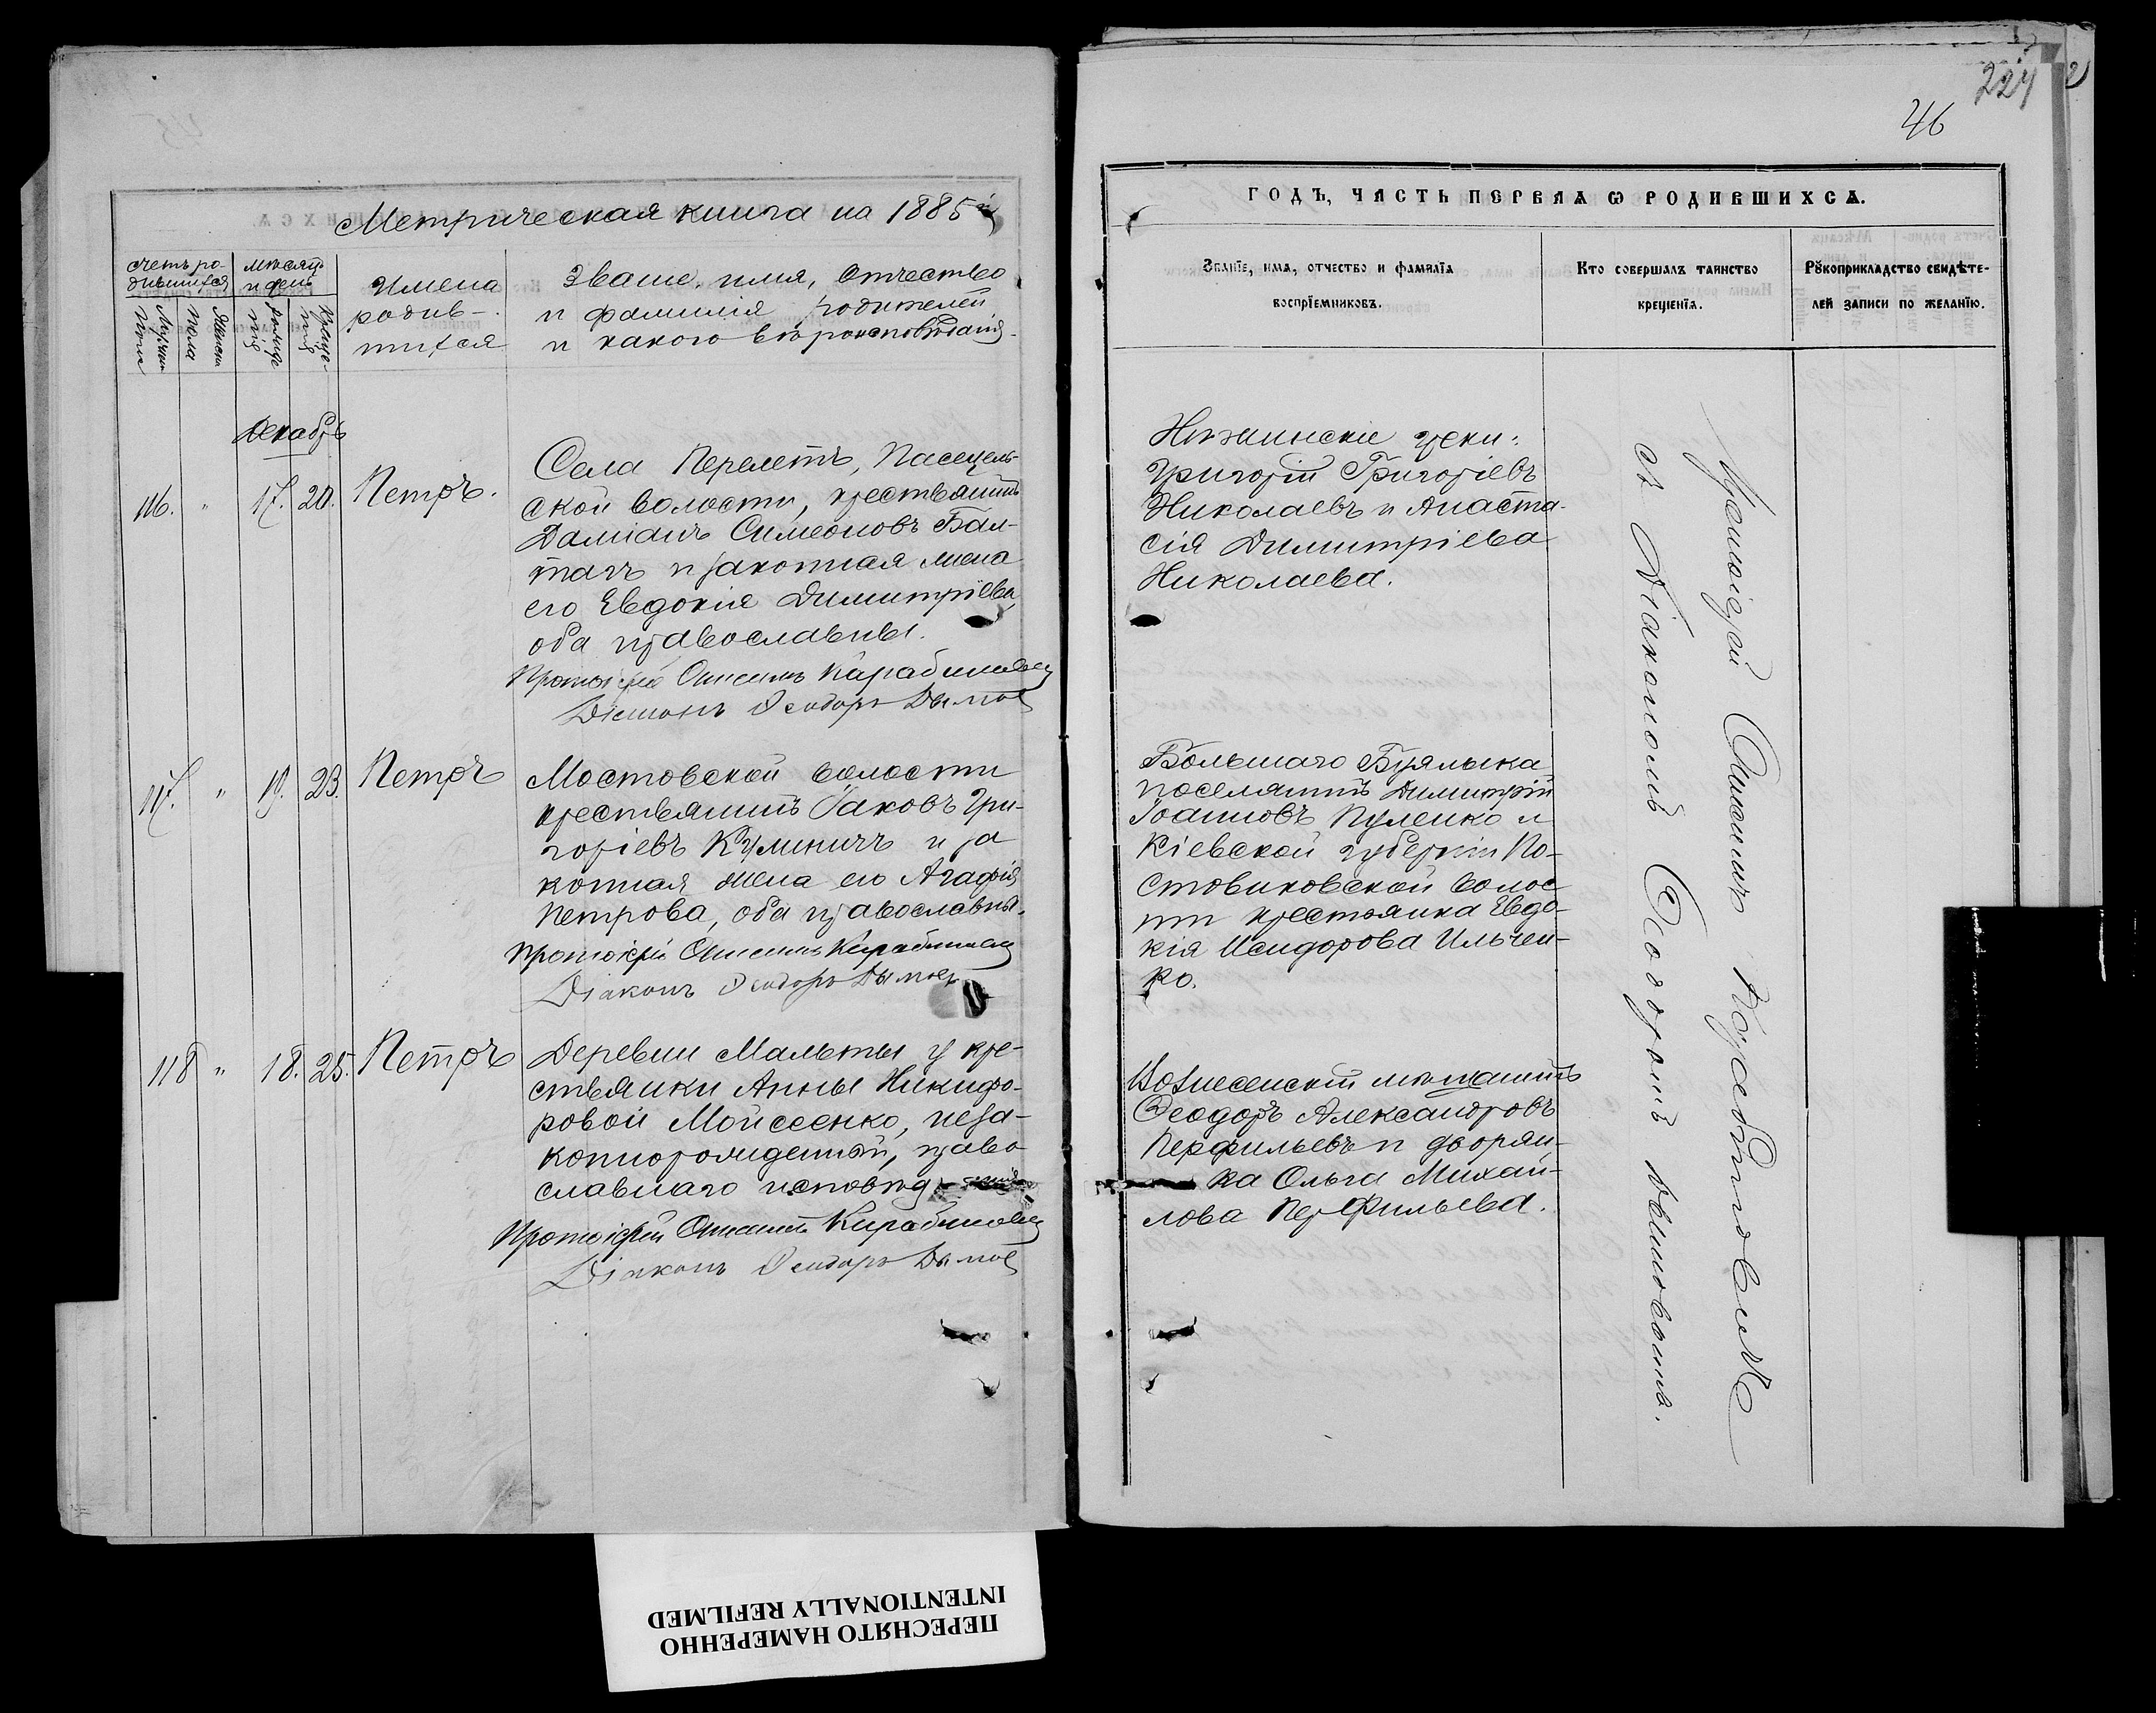 Метрическая книга на 1885й
счетъ ро-
дившихся
мѣсяцъ
и день
Мужска
пола
Женска
пола
рожде
нія
креще-
нія
Имена
родив-
шихся
Званіе, имя, отчество
и фамилія родителей
и какого вѣроисповѣданія
Декабрь
116. " 17. 20. Петръ.
Села Перелетъ, Пасецель-
ской волости, крестьянинъ
Даміанъ Симеоновъ Бал-
тагъ и законная жена
его Евдокія Димитріева,
оба православны.
Протоіерей Онисимъ
Діаконъ Ѳеодоръ
117. " 19. 23. Петръ
Мостовской волости
крестьянинъ Іаковъ Гри-
горіевъ Кулиничъ и за
конная жена его Агафія
Петрова, оба православны.
Протоіерей Онисимъ
Діаконъ Ѳеодоръ
118 " 18. 25. Петръ
Деревни Мальты у кре-
стьянки Анны Никифо-
ровой Мойсеенко, неза-
коннорожденный, право
славнаго исповѣд
Протоіерей Онисимъ
Діаконъ Ѳеодоръ
224
46
ГОДЪ, ЧАСТЬ ПЕРВАЯ Ѡ РОДИВШИХСѦ.
Званіе, имѧ, отчество и фамиліѧ
воспріемниковъ.
Кто совершалъ таинство
крещеніѧ.
Рꙋкоприкладство свидѣте-
лей записи по желанію.
Нѣжинскіе греки:
Григорій Григоріевъ
Николаевъ и Анаста-
сія Димитріева
Николаева.
Большаго Буялыка
поселянинъ Димитрій
Іоанновъ Пуленко и
Кіевской губерніи По-
стовиковской волос
ти крестьянка Евдо-
кія Исидорова Ильчен-
ко.
Вознесенскій мѣщанинъ
Ѳеодоръ Александровъ
Перфильевъ и дворян-
ка Ольга Михай-
лова Перфильева.
Протоіерей Онисимъ
съ Діакономъ Ѳеодоромъ
ПЕРЕСНЯТО НАМЕРЕННО
INTENTIONALLY REFILMED